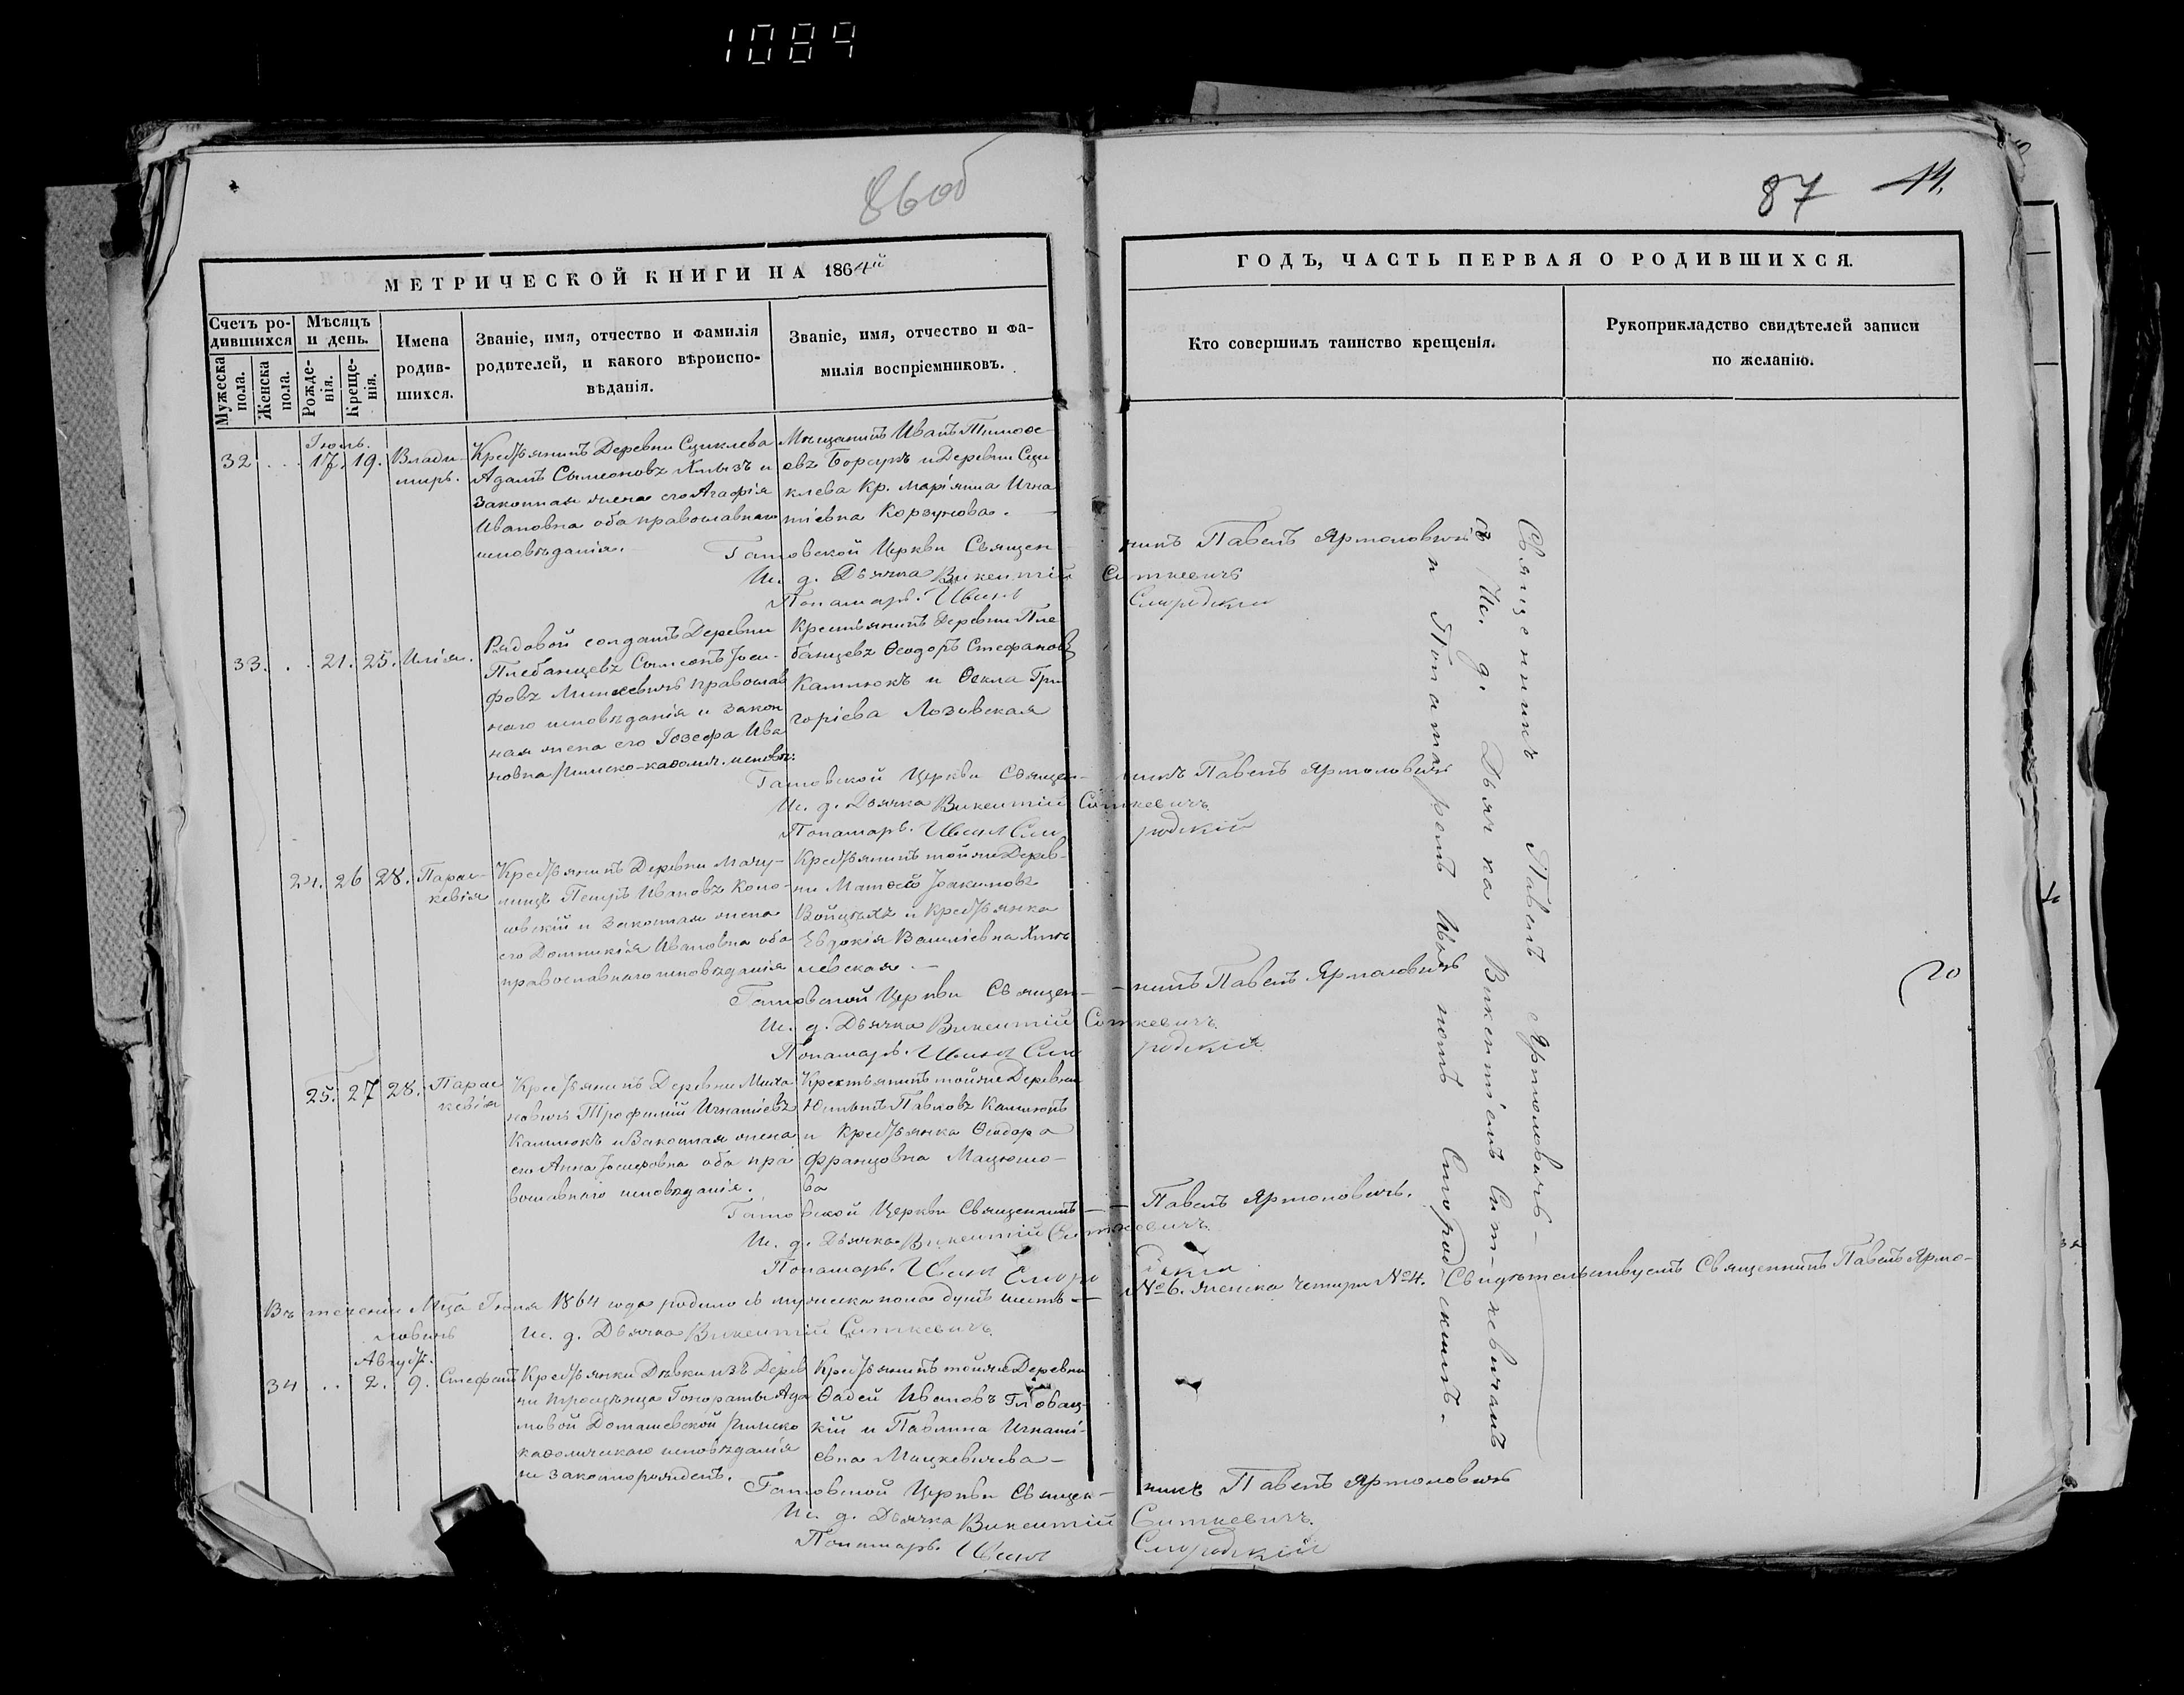 1089
86об
87 44.
МЕТРИЧЕСКОЙ КНИГИ НА 1864й
ГОДЪ, ЧАСТЬ ПЕРВАЯ О РОДИВШИХСЯ.
Счетъ родившихся
Мужеска пола.
Женска пола.
Мѣсяцъ и день.
Рожденія.
Крещенія.
Имена родившихся.
Званіе, имя, отчество и фамилія
родителей, и какого вѣроисповѣданія.
Званіе, имя, отчество и фамилія воспріемниковъ.
Кто совершилъ таинство крещенія.
Рукоприкладство свидѣтелей записи
по желанію.
Іюль.
32 17. 19. Владимиръ.
Крестьянинъ Деревни Сциклева
Адамъ Сымоновъ Хмызъ и
законная жена его Агафія
Ивановна оба православнаго
исповѣданія.
Мѣщанинъ Иванъ Тимофеевъ Борсукъ и Деревни Сциклева Кр. Маріянна Игнатіевна Корзунова.
Гатовской Церкви Священникъ Павелъ Ярмоловичъ
И. д. Дьячка Викентій Ситкевичъ
Пономарь. Иванъ Смородскій
33. 21. 25. Илія.
Рядовой солдатъ Деревни
Плебанцевъ Сымонъ Іосифовъ православнаго исповѣданія и законная жена его Іозефа Ивановна Римско-католич. исповѣд:
Крестьянинъ Деревни Плебанцевъ Ѳеодоръ Стефановъ
Камлюкъ и Ѳекла Григоріева Лозовская
Гатовской Церкви Священникъ Павелъ Ярмоловичъ
И. д. Дьячка Викентій Ситкевичъ.
Пономарь. Иванъ Смородскій
24. 26 28. Параскевія
Крестьянинъ Деревни Мачулищъ Петръ Ивановъ и законная жена
его Домникія Ивановна оба
православнаго исповѣданія
Крестьянинъ тойже Деревни Матвей Іоакимовъ
Войцѣхъ и Крестьянка
Евдокія Василіевна
Гатовской Церкви Священникъ Павелъ Ярмоловичъ
И. д. Дьячка Викентій Ситкевичъ.
Пономарь. Иванъ Смородскій
25. 27 28. Параскевія
Крестьянинъ Деревни Михановичъ Трофимій Игнатіевъ
Камлюкъ и Законная жена
его Анна Іосифовна оба православнаго исповѣданія.
Крестьянинъ тойже Деревни
Павловъ Камлюкъ
и Крестьянка Ѳеодора
Францовна Мацюшова
Гатовской Церкви Священникъ Павелъ Ярмоловичъ.
И. д. Дьячка Викентій Ситкевичъ.
Пономарь. Иванъ Смородскій
Въ теченіи М͠ца Іюля 1864 года родилось мужеска пола душъ шесть №6. женска четыре №4. Свидѣтельствуетъ Священникъ Павелъ Ярмоловичъ
И. д. Дьячка Викентій Ситкевичъ.
Августъ.
34 2. 9. Стефанъ
Крестьянки Дѣвки изъ Деревни Гонораты Адамовой Доташевской Римско
католическаго исповѣданія
не законнорожденъ.
Крестьянинъ тойже Деревни
Ѳадей Ивановъ Гловацкій и Павлина Игнатіевна Мацкевичева
Гатовской Церкви Священникъ Павелъ Ярмоловичъ
И. д. Дьячка Викентій Ситкевичъ.
Пономарь. Иванъ Смородскій
Священникъ Павелъ Ярмоловичъ
съ И. д. Дьячка Викентіемъ Ситкевичамъ
и Пономаремъ Иваномъ Смородскимъ.
20